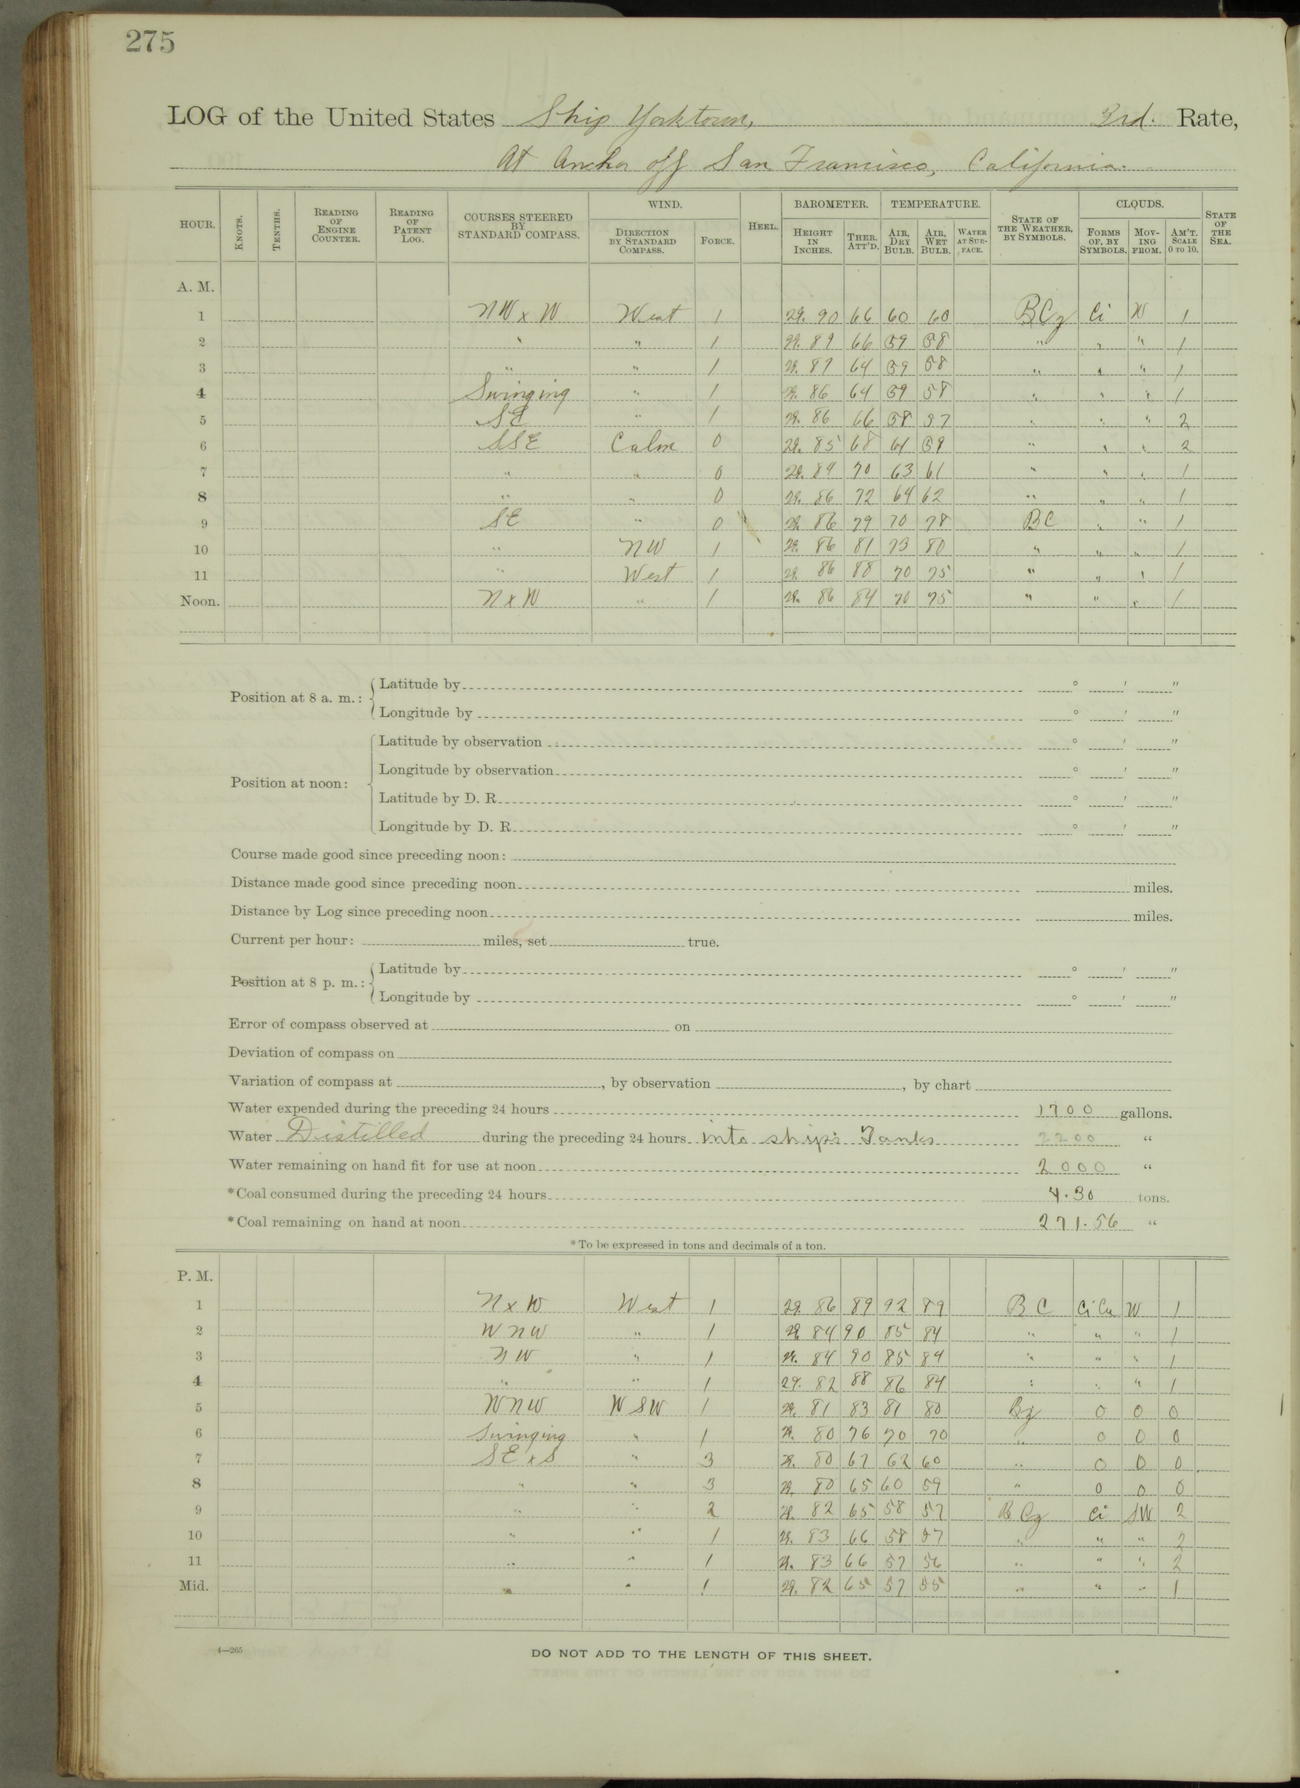 275
LOG of the United States Ship Yorktown, 3rd. Rate,
At Anchor off San Francisco, California.
HOUR. KNOTS. TENTHS. READING OF ENGINE COUNTER. READING OF PATENT LOG. COURSES STEERED BY STANDARD COMPASS. WIND. DIRECTION BY STANDARD COMPASS. FORCE. HEEL. BAROMETER. HEIGHT IN INCHES. THER. ATT'D. TEMPERATURE. AIR, DRY BULB. AIR, WET BULB. WATER AT SURFACE. STATE OF THE WEATHER, BY SYMBOLS. CLOUDS. FORMS OF, BY SYMBOLS. MOVING FROM. AM'T. SCALE 0 TO 10. STATE OF THE SEA.
A. M.
1 NW x W West 1 29. 90 66 60 60 BCz Ci W 1
2 " " 1 29. 89 66 59 58 " " " 1
3 " " 1 29. 87 64 59 58 " " " 1
4 Swinging " 1 29. 86 64 59 58 " " " 1
5 SE " 1 29. 86 66 58 57 " " " 2
6 SSE Calm 0 29. 85 68 61 59 " " " 2
7 " " 0 29. 84 70 63 61 " " " 1
8 " " 0 29. 86 72 64 62 " " " 1
9 SE " 0 29. 86 79 70 78 BC " " 1
10 " NW 1 29. 86 81 73 80 " " " 1
11 " West 1 29. 86 88 70 75 " " " 1
Noon. N x W " 1 29. 86 84 70 75 " " " 1
Position at 8 a. m.: Latitude by ° ′ ″
Longitude by ° ′ ″
Position at noon: Latitude by observation ° ′ ″
Longitude by observation ° ′ ″
Latitude by D. R. ° ′ ″
Longitude by D. R. ° ′ ″
Course made good since preceding noon:
Distance made good since preceding noon miles.
Distance by Log since preceding noon miles.
Current per hour: miles, set true.
Position at 8 p. m.: Latitude by ° ′ ″
Longitude by ° ′ ″
Error of compass observed at on
Deviation of compass on
Variation of compass at , by observation , by chart
Water expended during the preceding 24 hours 1700 gallons.
Water Distilled during the preceding 24 hours into ship's Tanks 2200 "
Water remaining on hand fit for use at noon 2000 "
*Coal consumed during the preceding 24 hours 4.30 tons.
*Coal remaining on hand at noon 271.56 "
*To be expressed in tons and decimals of a ton.
P. M.
1 N x W West 1 29. 86 89 92 89 BC Ci Cu W 1
2 WNW " 1 29. 84 90 85 84 " " " 1
3 NW " 1 29. 84 90 85 84 " " " 1
4 " " 1 29. 82 88 86 84 " " " 1
5 WNW WSW 1 29. 81 83 81 80 Bz 0 0 0
6 Swinging " 1 29. 80 76 70 70 " 0 0 0
7 SE x S " 3 29. 80 67 62 60 " 0 0 0
8 " " 3 29. 80 65 60 59 " 0 0 0
9 " " 2 29. 82 65 58 57 BCz Ci SW 2
10 " " 1 29. 83 66 58 57 " " " 2
11 " " 1 29. 83 66 57 56 " " " 2
Mid. " " 1 29. 82 65 57 55 " " " 1
4—265
DO NOT ADD TO THE LENGTH OF THIS SHEET.